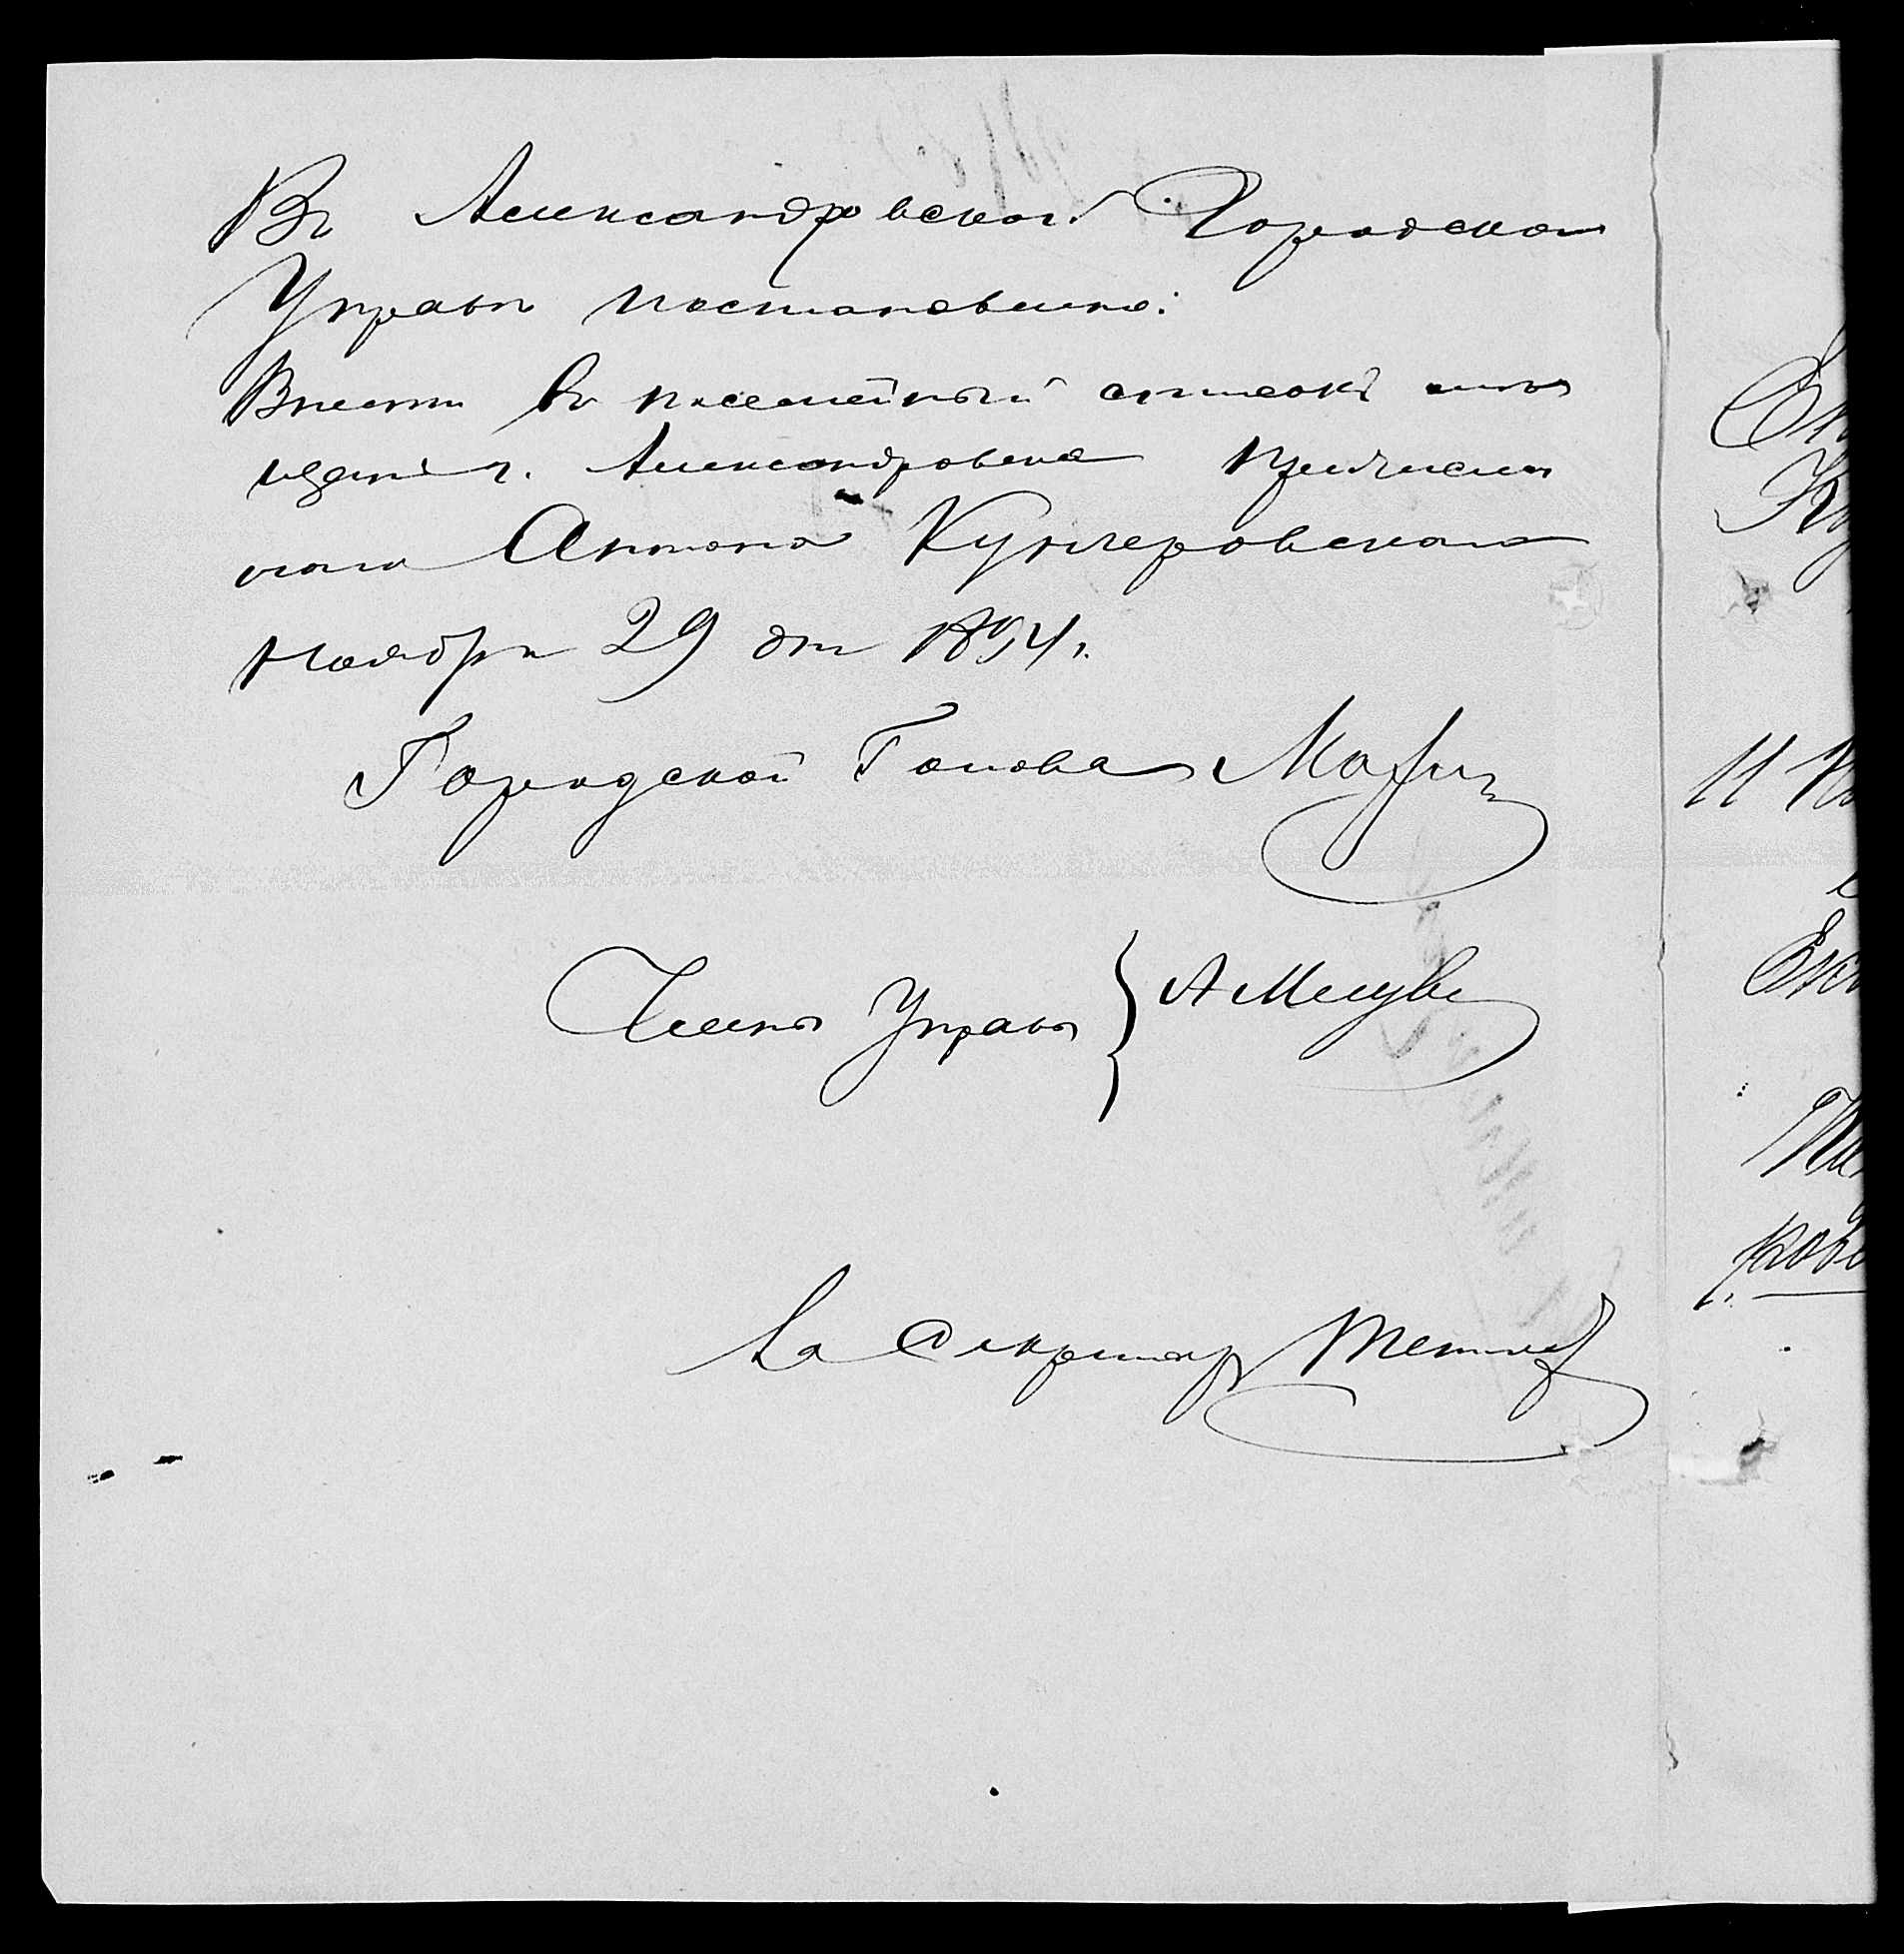 Въ Александровской Городской
Управѣ постановлено:
Внести въ посемейный списокъ мѣ
щанъ г. Александровска причислен
наго Антона Кучеровскаго
Ноября 29 дня 1894 г.
Городской Голова
Члены Управы } А
За Секретаря
11